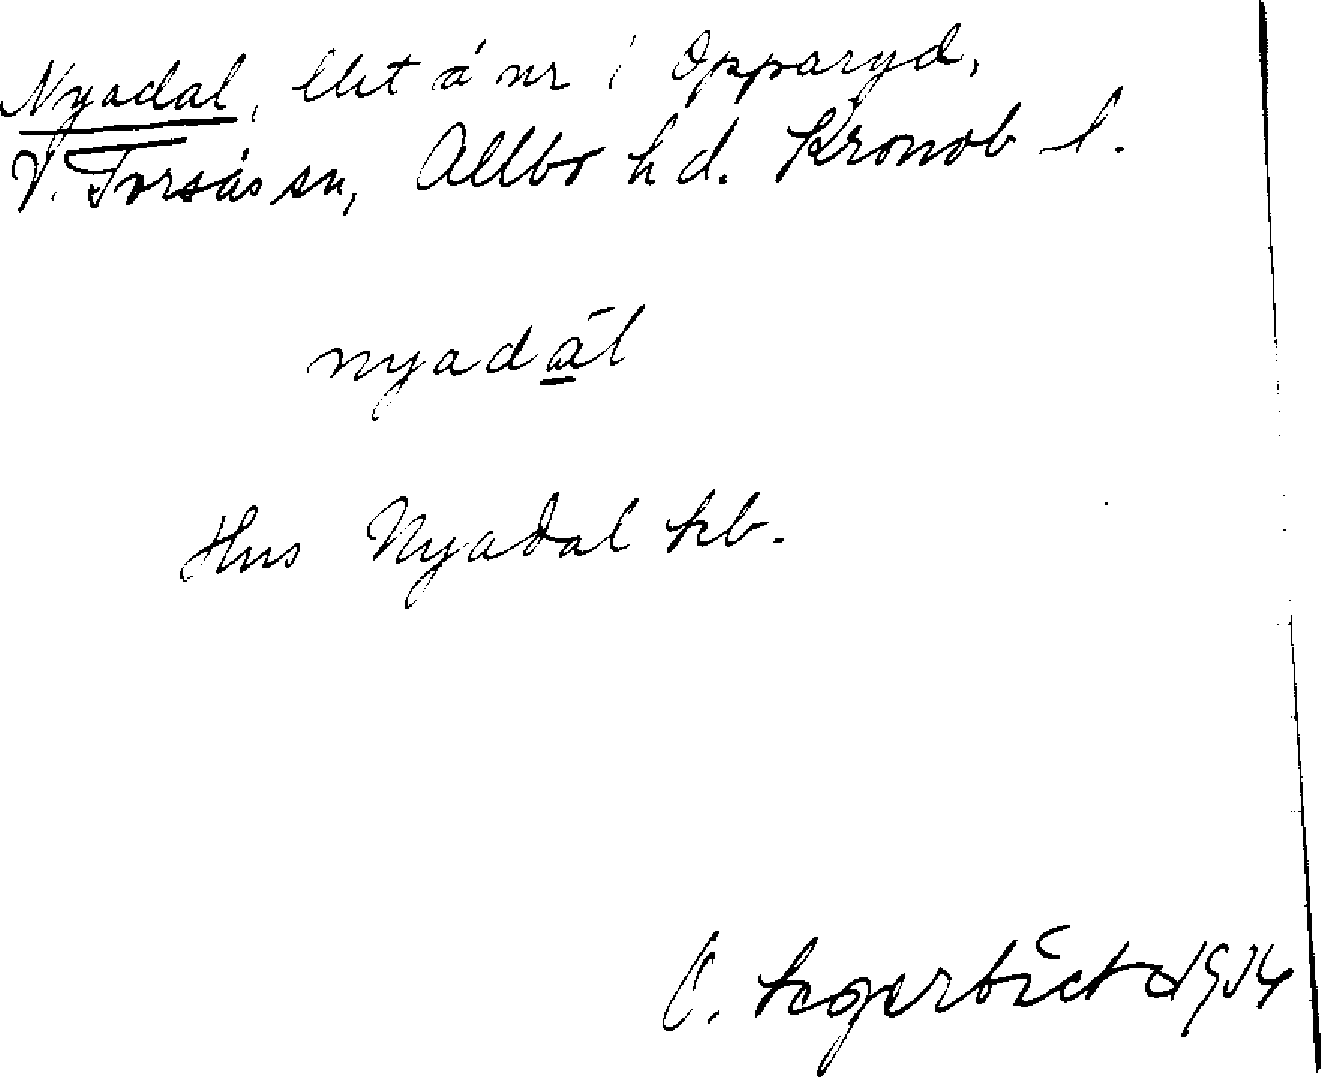 Nyadal,llt å nr i Opparyd,
V. Torsås sn, Allbo hd. Kronob l.
nyadál
Hus Nyadal kb.
C. Segerbäck 1934